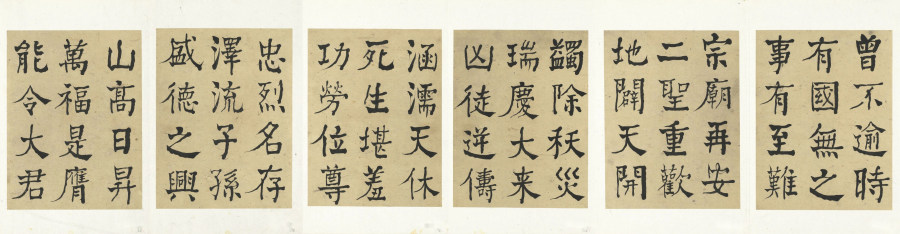 曾不逾時
有國無之
事有至難
宗廟再安
二聖重歡
地闢天開
蠲除祅災
瑞慶大来
凶徒逆儔
涵濡天休
死生堪羞
功勞位尊
忠烈名存
澤流子孫
盛德之興
山髙日昇
萬福是膺
能令大君